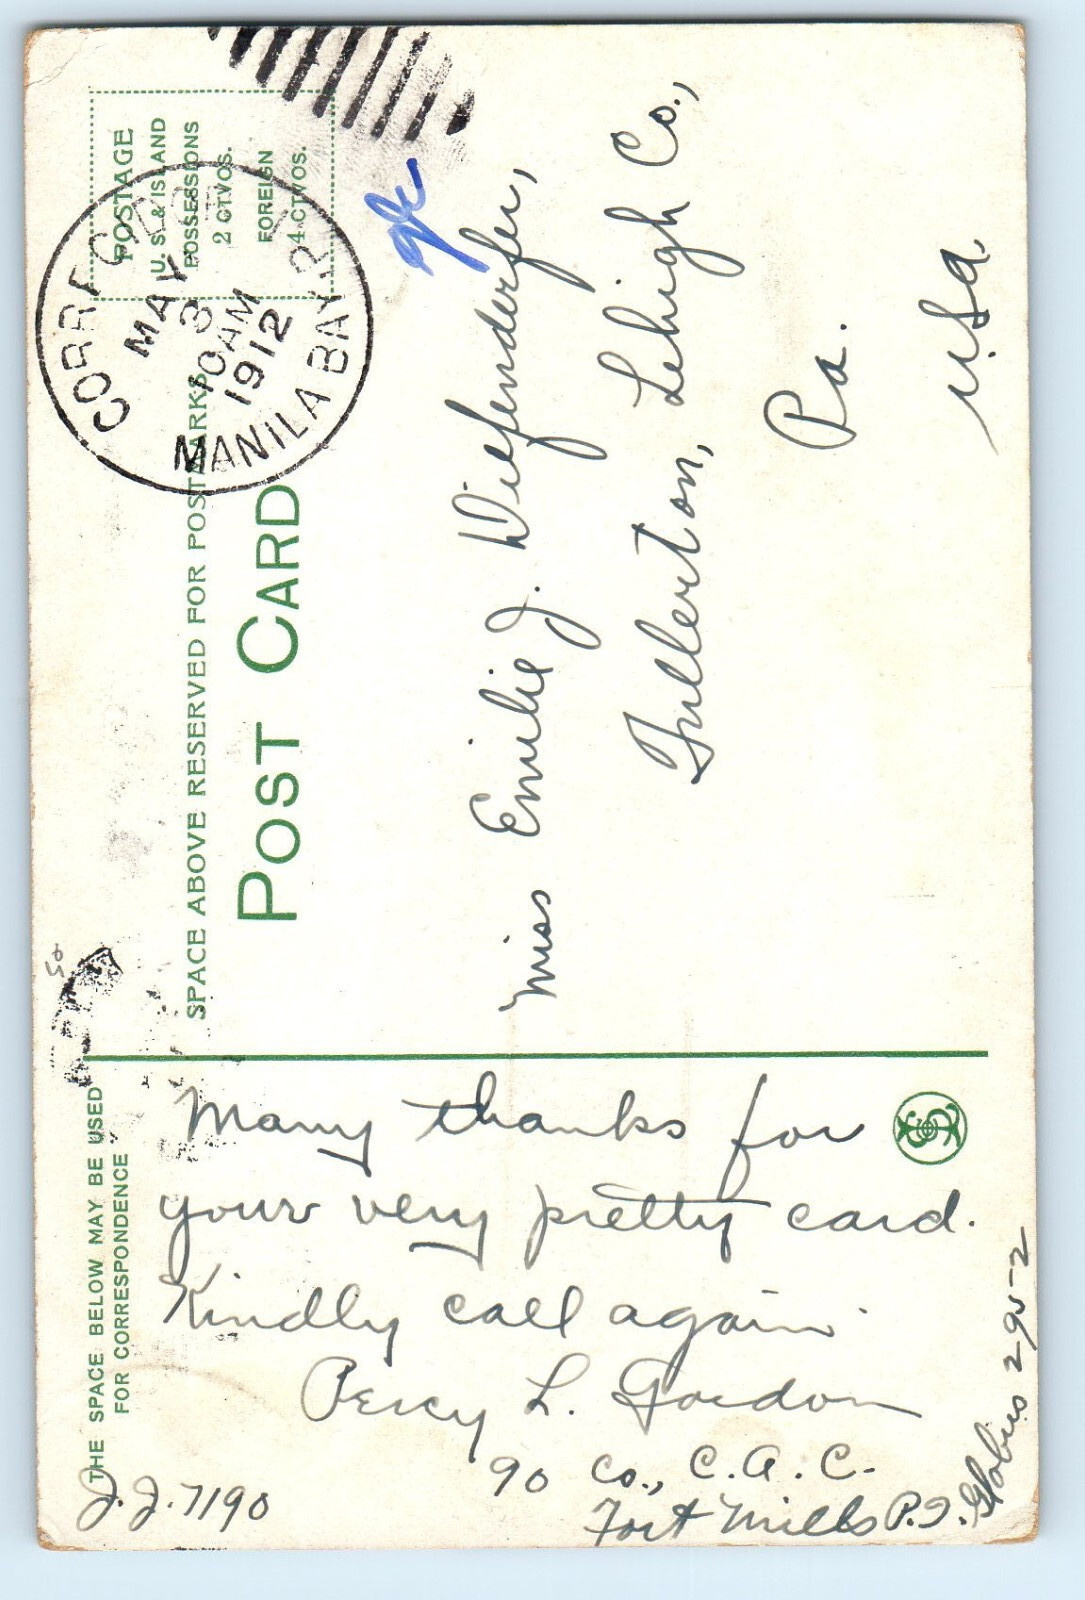 POSTAGE
U. S. & ISLAND
POSSESSIONS
2 CTVOS.
FOREIGN
4 CTVOS.
CORREGIDOR
MAY
3
10 AM
1912
MANILA BAY, P.
SPACE ABOVE RESERVED FOR POSTMARKS
POST CARD
Miss Emilie J. Diefenderfer,
Fullerton, Lehigh Co.,
Pa.
U.S.A.
THE SPACE BELOW MAY BE USED
FOR CORRESPONDENCE
Many thanks for
your very pretty card.
Kindly call again.
Percy L. Gordon
90 Co., C. A. C.
Fort Mills P. I.
J. J. 7190
Globus 295-2